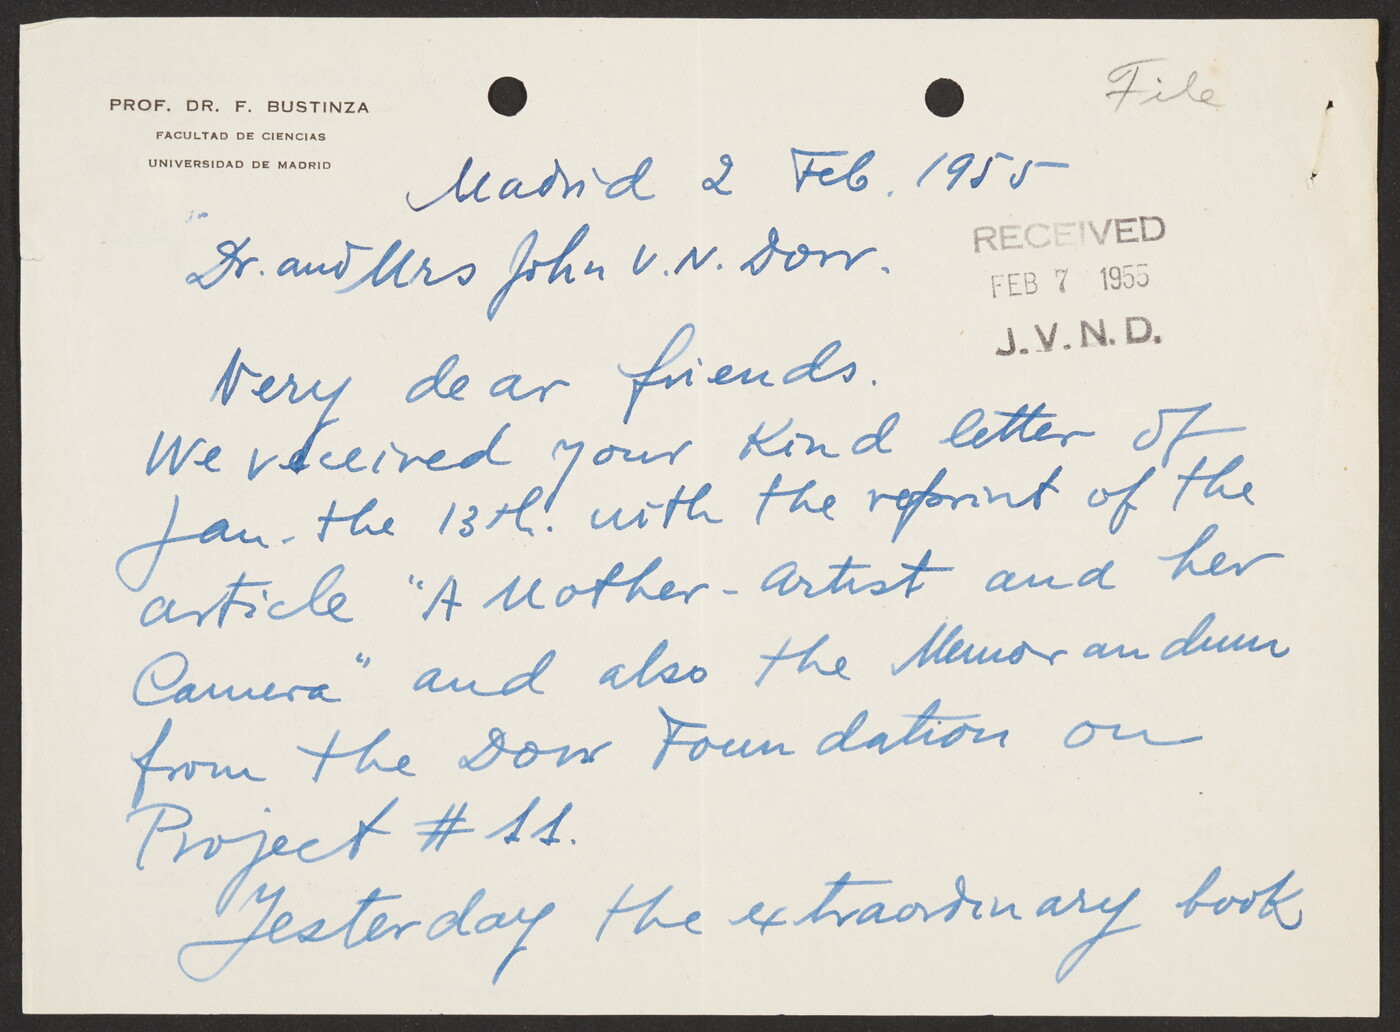 File
PROF. DR. F. BUSTINZA
FACULTAD DE CIENCIAS
UNIVERSIDAD DE MADRID
Madrid 2 Feb. 1955
Dr. and Mrs John V. N. Dorr.
RECEIVED
FEB 7 1955
J. V. N. D.
Very dear friends.
We received your kind letter of
Jan. the 13th. with the reprint of the
article "A Mother-Artist and her
Camera" and also the Memorandum
from the Dorr Foundation on
Project # 11.
Yesterday the extraordinary book